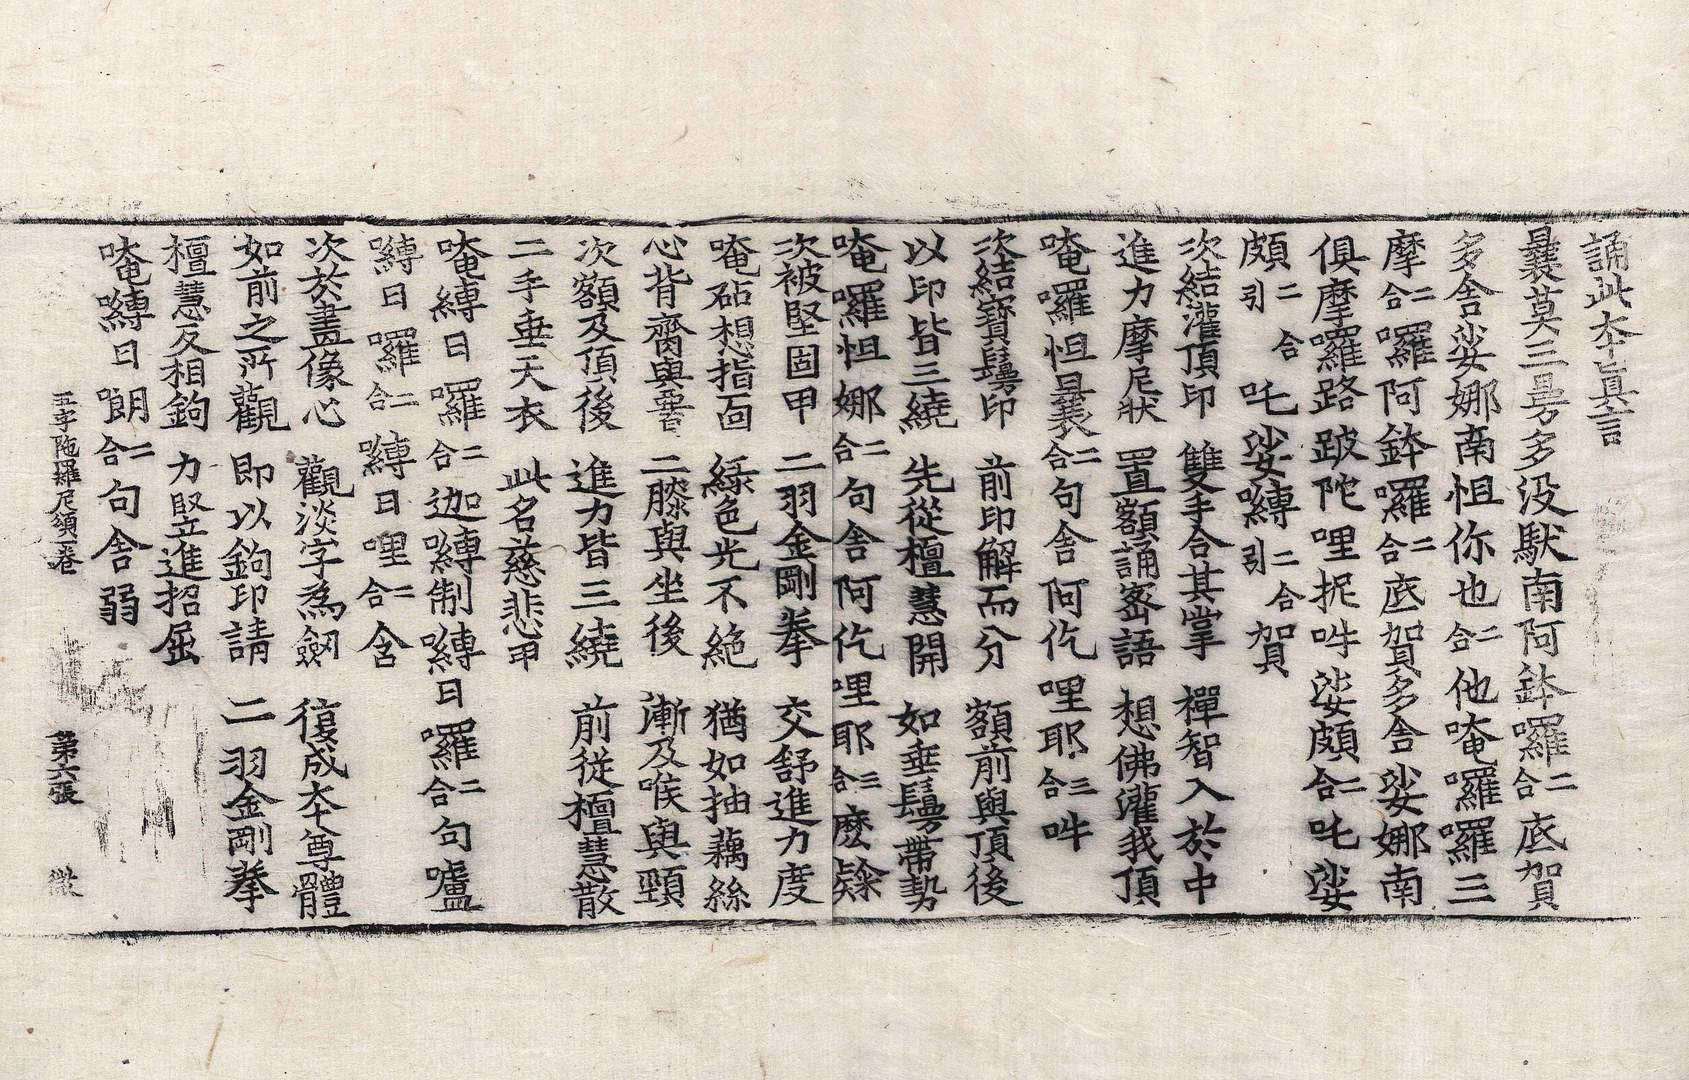 誦此本真言
曩莫三曼多没馱南阿鉢囉二合底賀
多舍娑娜南怛你也二合他唵囉囉三
摩二合囉阿鉢囉二合底賀多舍娑娜南
俱摩囉路跛陀哩抳吽娑頗二合吒娑
頗二合引吒娑嚩二合引賀
次結灌頂印 雙手合其掌 禪智入於中
進力摩尼狀 置額誦密語 想佛灌我頂
唵囉怛曩二合句舍阿仡哩耶三合吽
次結寶鬘印 前印解而分 額前與頂後
以印皆三繞 先從檀慧開 如垂鬘帶勢
唵囉怛娜二合句舍阿仡哩耶三合麽㘕
次被堅固甲 二羽金剛拳 交舒進力度
唵砧想指面 綠色光不絶 猶如抽藕絲
心背齊與䯗 二膝與坐後 漸及喉與頸
次額及頂後 進力皆三繞 前從檀慧散
二手垂天衣 此名慈悲甲
唵嚩日囉二合迦嚩制嚩日囉二合句嚧
嚩日囉二合嚩日哩二合含
次於畫像心 觀淡字為劔 復成本尊體
如前之所觀 即以鉤印請 二羽金剛拳
檀慧反相鉤 力堅進招屈
唵嚩日嘲二合句舍弱
五字陁羅尼頌一卷 第六張 微